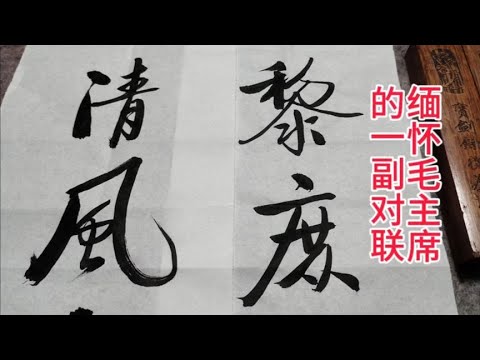 缅怀毛主席
的一副对联
黎庶
清風